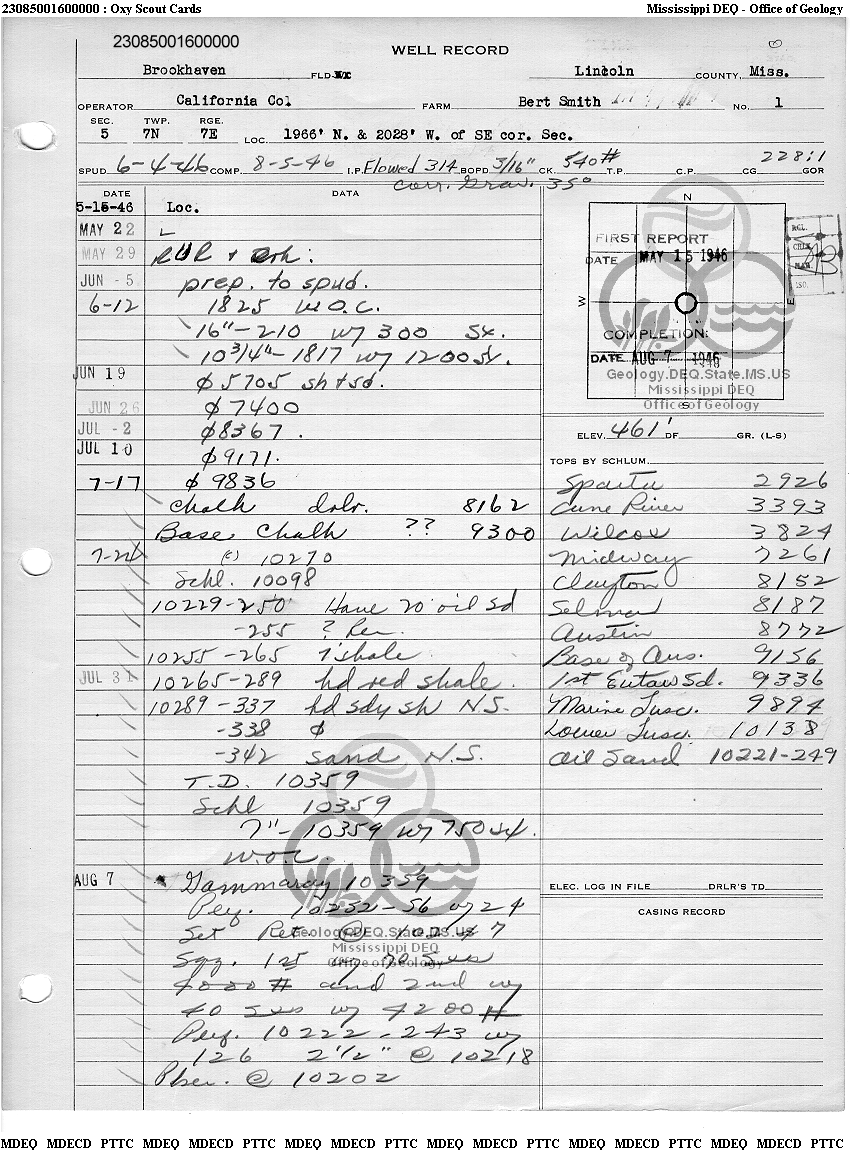 23085001600000 : Oxy Scout Cards Mississippi DEQ - Office of Geology
23085001600000
WELL RECORD
Brookhaven FLD. Lincoln COUNTY, Miss.
OPERATOR California Co. FARM Bert Smith NO. 1
SEC. TWP. RGE.
5 7N 7E LOC. 1966' N. & 2028' W. of SE cor. Sec.
SPUD 6-4-46 COMP. 8-5-46 I.P. Flowed 314 BOPD 3/16" CK. 540# T.P. C.P. CG 228:1 GOR
Corr. Grav. 35°
DATE DATA
5-15-46 Loc.
MAY 22 L
MAY 29 RUR +
JUN - 5 prep. to spud.
6-12 1825 W.O.C.
16"-210 w/ 300 Sx.
10 3/4"-1817 w/ 1200 sx.
JUN 19 ϕ 5705 sh + sd.
JUN 26 ϕ 7400
JUL - 2 ϕ 8367.
JUL 10 ϕ 9171.
7-17 ϕ 9836
Chalk drlr. 8162
Base Chalk ?? 9300
7-24 (c) 10270
Schl. 10098
10229-250 Have 20' oil sd
-255 ? Rec.
10255-265 1' shale
JUL 31 10265-289 hd red shale.
10289-337 hd sdy sh N.S.
-338 ϕ
-342 sand N.S.
T.D. 10359
Schl 10359
7"-10359 w/ 750 sx.
W.O.C.
AUG 7 Gammaray 10359
Perf. 10252-56 w/ 24
Set Ret. @ 10247
Sqz. 1st w/ 70 Sxs
4000# and 2nd w/
40 sxs w/ 4200#
Perf. 10222-243 w/
126 2 1/2" @ 10218
Pker. @ 10202
N
W
E
S
FIRST REPORT
DATE MAY 15 1946
COMPLETION:
DATE AUG 7 1946
RGL.
CHK
MAP
ISO.
Geology.DEQ.State.MS.US
Mississippi DEQ
Office of Geology
ELEV. 461' DF GR. (L-S)
TOPS BY SCHLUM.
Sparta 2926
Cane River 3393
Wilcox 3824
Midway 7261
Clayton 8152
Selma 8187
Austin 8772
Base of Aus. 9156
1st Eutaw Sd. 9336
Marine Tusc. 9894
Lower Tusc. 10138
Oil Sand 10221-249
ELEC. LOG IN FILE DRLR'S TD
CASING RECORD
Geology.DEQ.State.MS.US
Mississippi DEQ
Office of Geology
MDEQ MDECD PTTC MDEQ MDECD PTTC MDEQ MDECD PTTC MDEQ MDECD PTTC MDEQ MDECD PTTC MDEQ MDECD PTTC